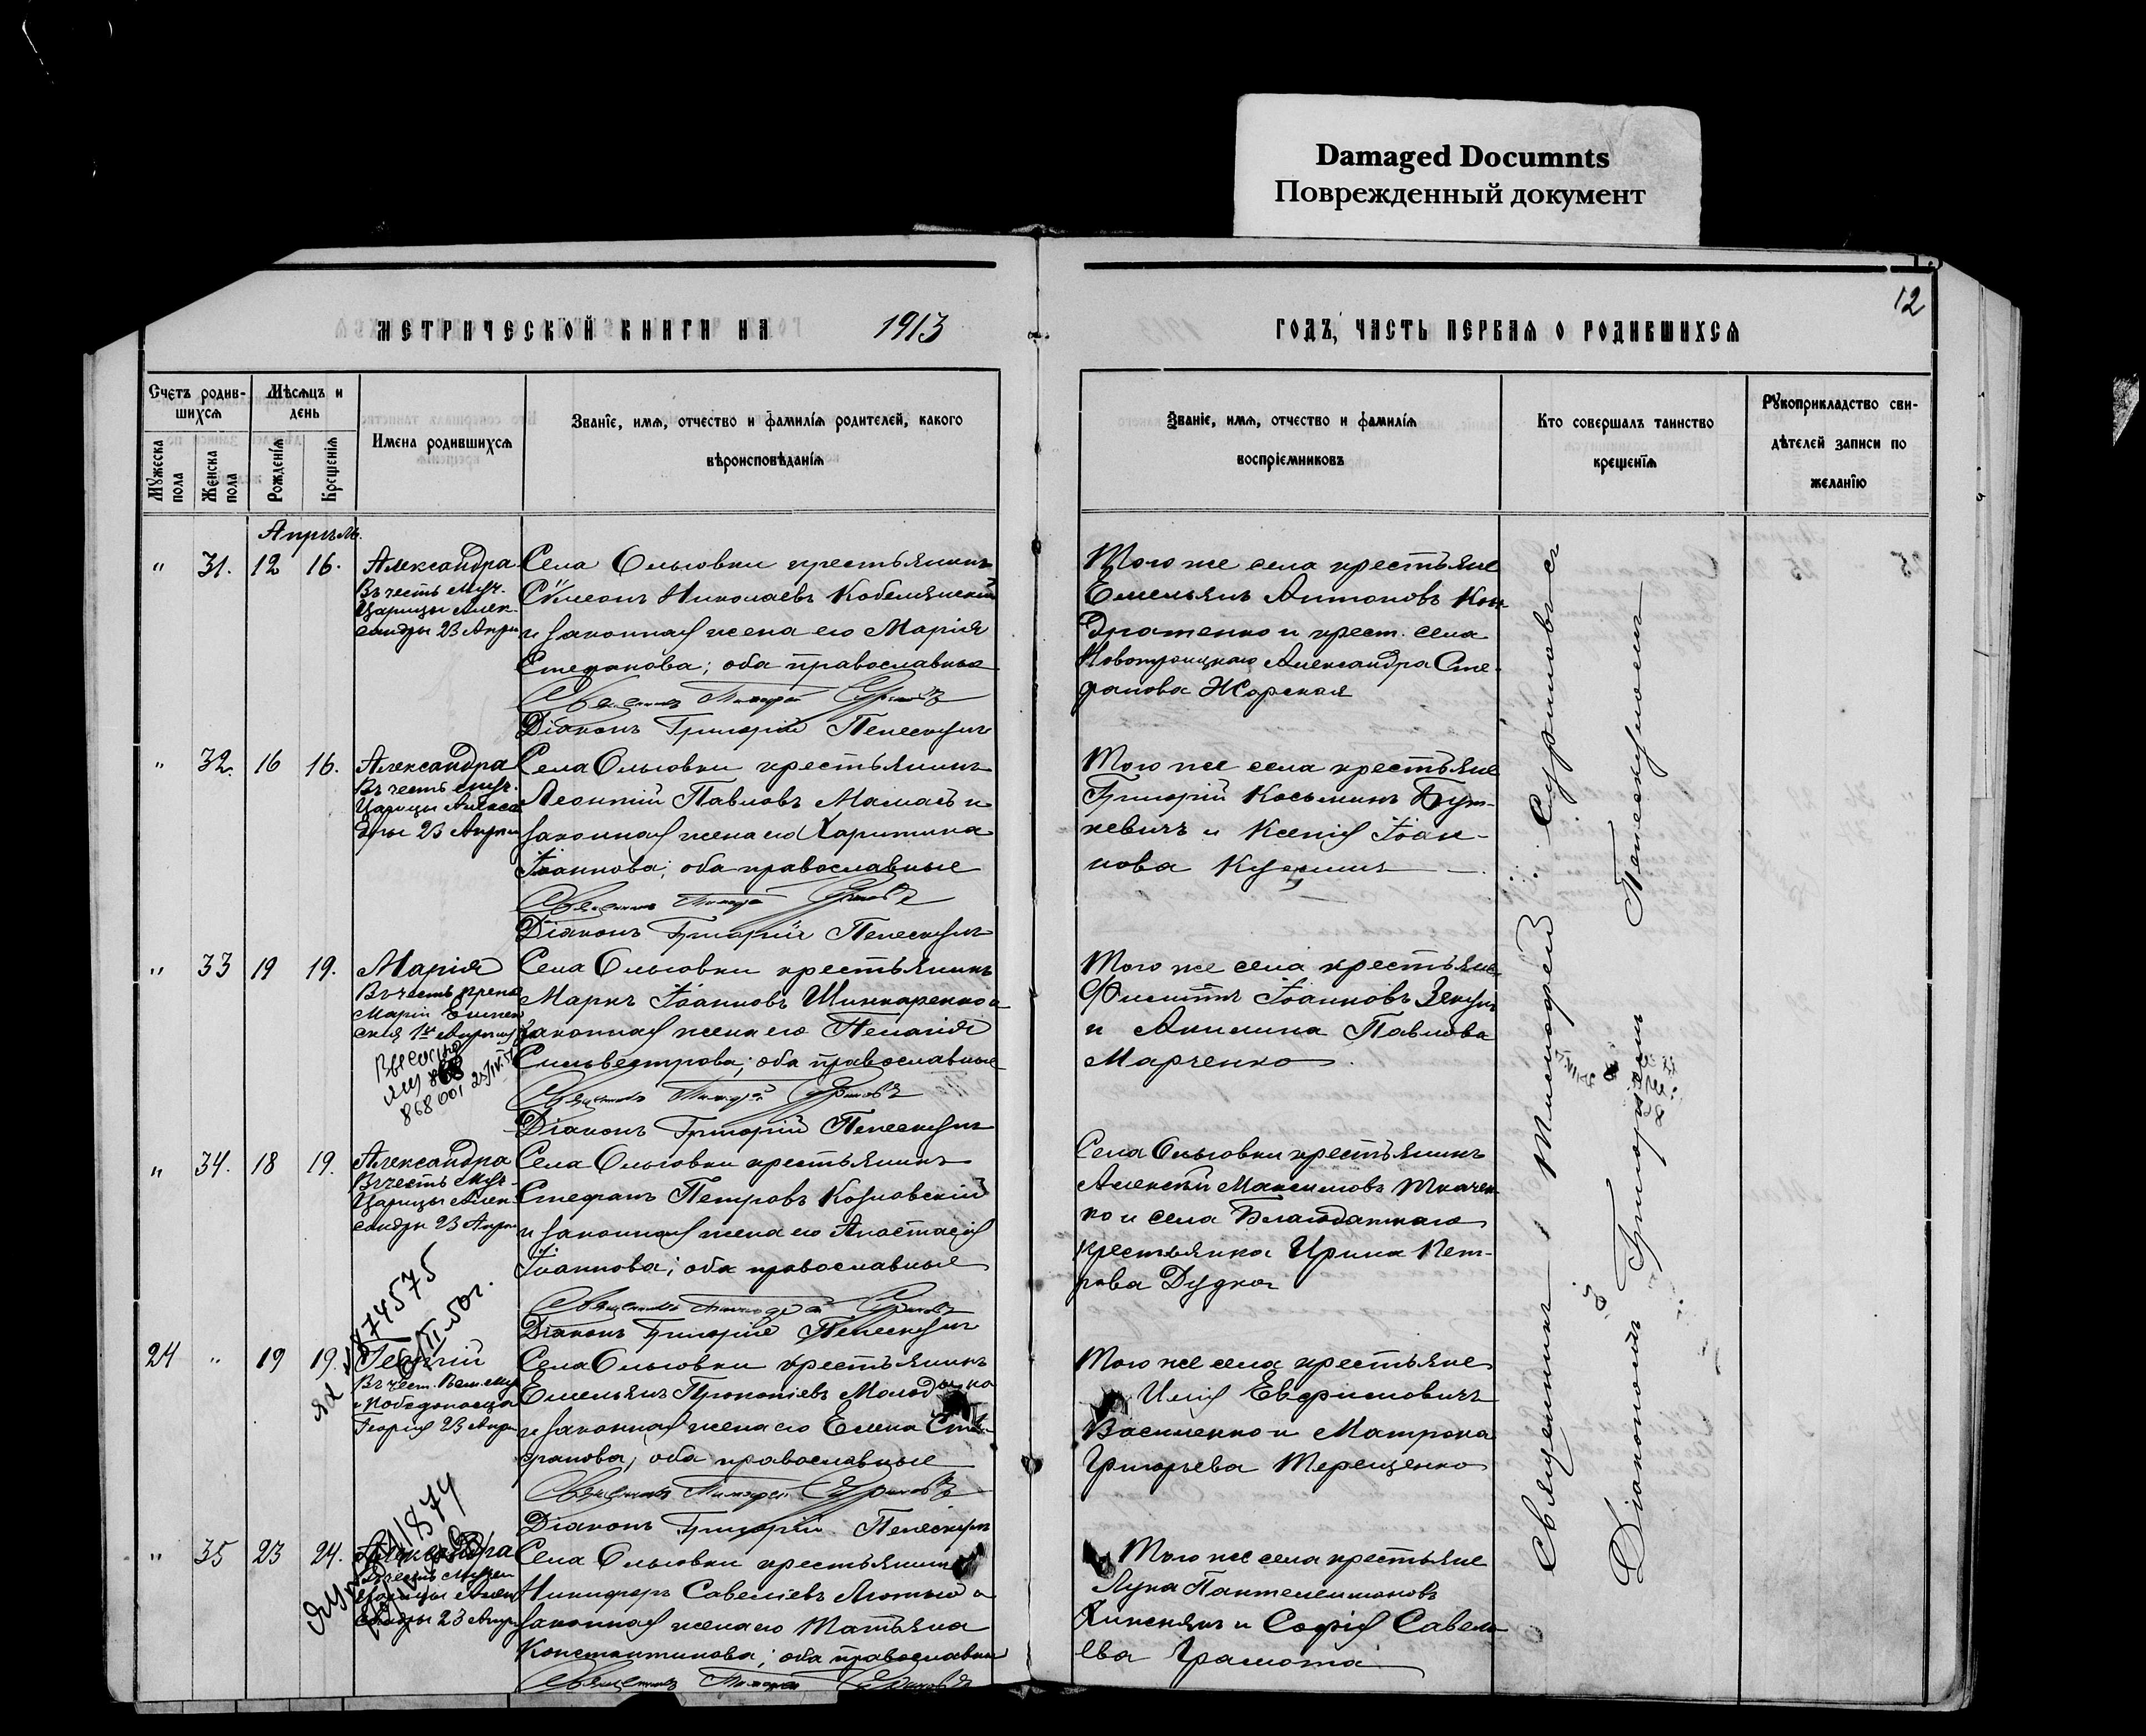 Damaged Documnts
Поврежденный документ
12
МЕТРИЧЕСКОЙ КНИГИ НА 1913
ГОДЪ, ЧАСТЬ ПЕРВАЯ О РОДИВШИХСЯ
Счетъ родив-
шихся
Мужеска
пола
Женска
пола
Мѣсяцъ и
день
Рожденїя
Крещенїя
Имена родившихся
Званїе, имя, отчество и фамилїя родителей, какого
вѣроисповѣданїя
Званїе, имя, отчество и фамилїя
воспрїемниковъ
Кто совершалъ таинство
крещенїя
Рукоприкладство сви-
дѣтелей записи по
желанїю
Апрѣль.
" 31. 12 16.
Александра
Въ честь муч.
Царицы Алек-
сандры 23 Апрѣ
Села Ольговки крестьянинъ
Сѵмеонъ Николаевъ Кобелянскій
и законная жена его Марія
Стефанова; оба православные
Священникъ Тимофей Суриновъ
Діаконъ Григорій Пелескулъ
Того же села крестьяне
Емельянъ Антоновъ Кон-
дратенко и крест. села
Новотроицкаго Александра Сте-
фанова Жорская
" 32. 16 16.
Александра
Въ честь муч.
Царицы Алекса
дры 23 Апрѣл
Села Ольговки крестьянинъ
Леонтій Павловъ Мамай и
законная жена его Харитина
Іоаннова; оба православные
Священникъ Тимофей Суриновъ
Діаконъ Григорій Пелескулъ
Того же села крестьяне
Григорій Косьминъ
кевичъ и Ксенія Іоан-
нова
" 33 19 19.
Марія
Въ честь препо
Маріи Египет
скія 1го Апрѣля
868001
Села Ольговки крестьянинъ
Маркъ Іоанновъ Шинкаренко и
законная жена его Пелагія
Сильвестрова; оба православные
Священникъ Тимофей Суриновъ
Діаконъ Григорій Пелескулъ
Того же села крестьяне
Филиппъ Іоанновъ
и Акилина Павлова
Марченко
" 34. 18 19.
Александра
Въ честь муч-
Царицы Алек-
сандры 23 Апрѣ
Села Ольговки крестьянинъ
Стефанъ Петровъ Козловскій
и законная жена его Анастасія
Іоаннова; оба православные
Священникъ Тимофей Суриновъ
Діаконъ Григорій Пелескулъ
Села Ольговки крестьянинъ
Алексѣй Максимовъ Ткачен-
ко и села Благодатнаго
крестьянка Ирина Пет-
рова Дудка
24 " 19 19.
Георгій
Въ чест. Вели. муч
и Побѣдоносца
Георгія 23 Апрѣ
Села Ольговки крестьянинъ
Емельянъ Прокопіевъ
и законная жена его Елена Сте-
фанова; оба православные
Священникъ Тимофей Суриновъ
Діаконъ Григорій Пелескулъ
Того же села крестьяне
Илія Евфимовичъ
Василенко и Матрона
Григорьева Терещенко
" 35 23 24.
Александра
Въ честь Мучен
Царицы Алек
сандры 23 Апрѣ
Села Ольговки крестьянинъ
Никифоръ Савеліевъ Лютый и
законная жена его Татьяна
Константинова; оба православные
Священникъ Тимофей Суриновъ
Того же села крестьяне
Лука Пантелеимоновъ
и Софія Савель
ева Грамота
Священникъ Тимофей Суриновъ съ
Діакономъ Григоріемъ Пелескуломъ